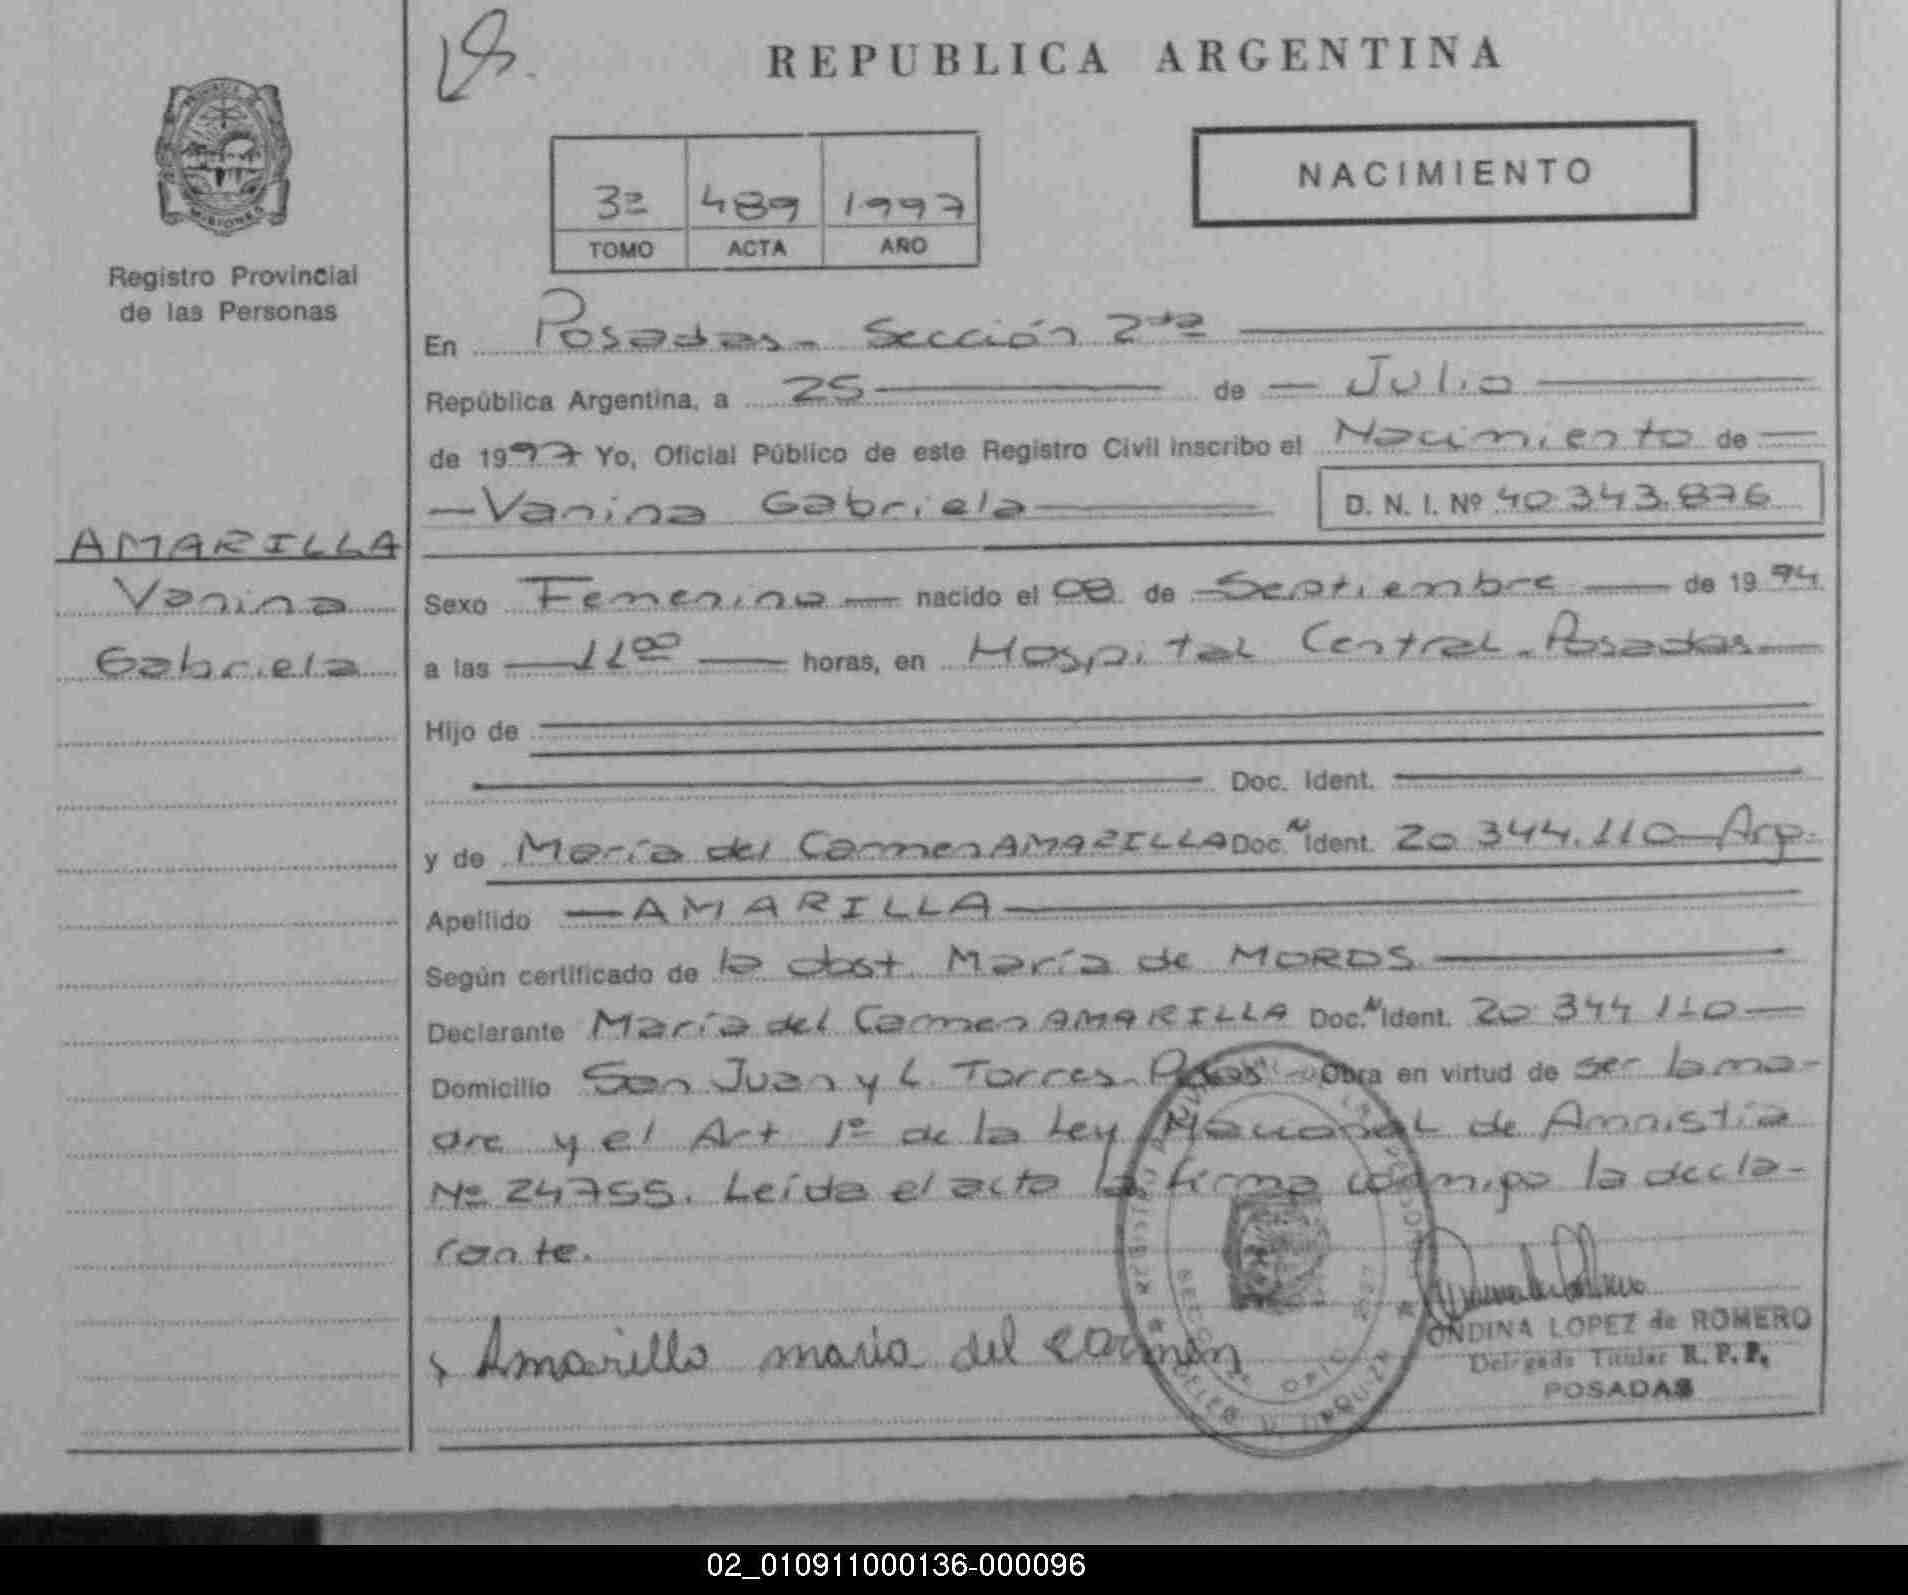 REPUBLICA ARGENTINA
MISIONES
Registro Provincial
de las Personas
3º 489 1997
TOMO ACTA AÑO
NACIMIENTO
En Posadas - Sección 2da
República Argentina, a 25 de Julio
de 1997 Yo, Oficial Público de este Registro Civil inscribo el Nacimiento de
Vanina Gabriela D. N. I. Nº 40.343.876
AMARILLA
Vanina
Gabriela
Sexo Femenino nacido el 08 de Septiembre de 1994
a las 1100 horas, en Hospital Central - Posadas
Hijo de
Doc. Ident.
y de María del Carmen AMARILLA Doc. N Ident. 20.344.110 Arg.
Apellido AMARILLA
Según certificado de la obst. María de MOROS
Declarante María del Carmen AMARILLA Doc. N Ident. 20 344 110
Domicilio San Juan y L. Torres - Obra en virtud de ser la ma-
dre y el Art 1º de la Ley Nacional de Amnistía
Nº 24755. Leída el acta la firma conmigo la decla-
rante.
Amarilla maria del carmen
ONDINA LOPEZ de ROMERO
Delegada Titular R. P. P.
POSADAS
02_010911000136-000096